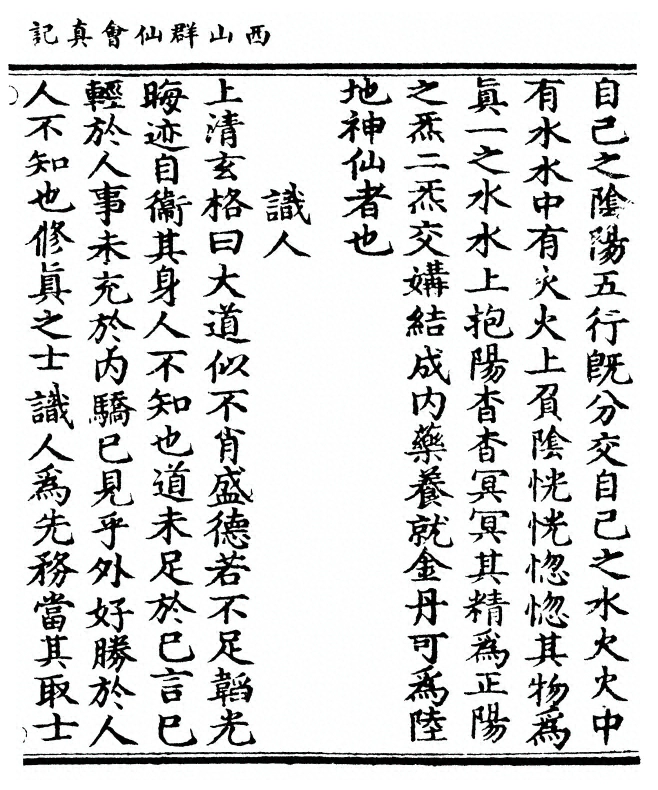 西山群仙會真記
自己之陰陽五行旣分交自己之水火火中
有水水中有火火上負陰恍恍惚惚其物爲
眞一之水水上抱陽杳杳冥冥其精爲正陽
之炁二炁交媾結成内藥養就金丹可爲陸
地神仙者也
識人
上清玄格曰大道似不肖盛德若不足韜光
晦迹自衞其身人不知也道未足於已言已
輕於人事未充於内驕已見乎外好勝於人
人不知也修眞之士識人爲先務當其取士